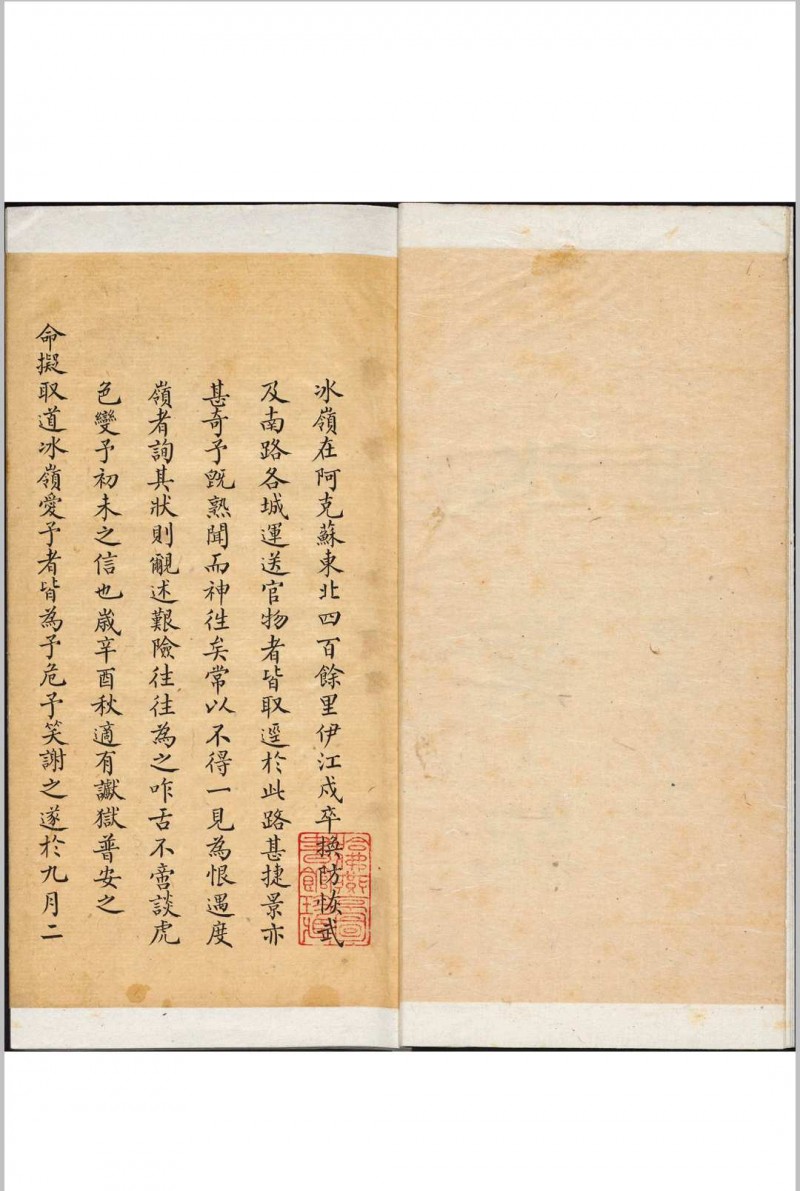 冰嶺在阿克蘇東北四百餘里伊江戍卒換防恢武
及南路各城運送官物者皆取逕於此路甚捷景亦
甚奇予既熟聞而神徃矣常以不得一見為恨遇度
嶺者詢其狀則覼述艱險往往為之咋舌不啻談虎
色變予初未之信也嵗辛酉秋適有讞獄普安之
命擬取道冰嶺愛予者皆為予危予笑謝之遂於九月二